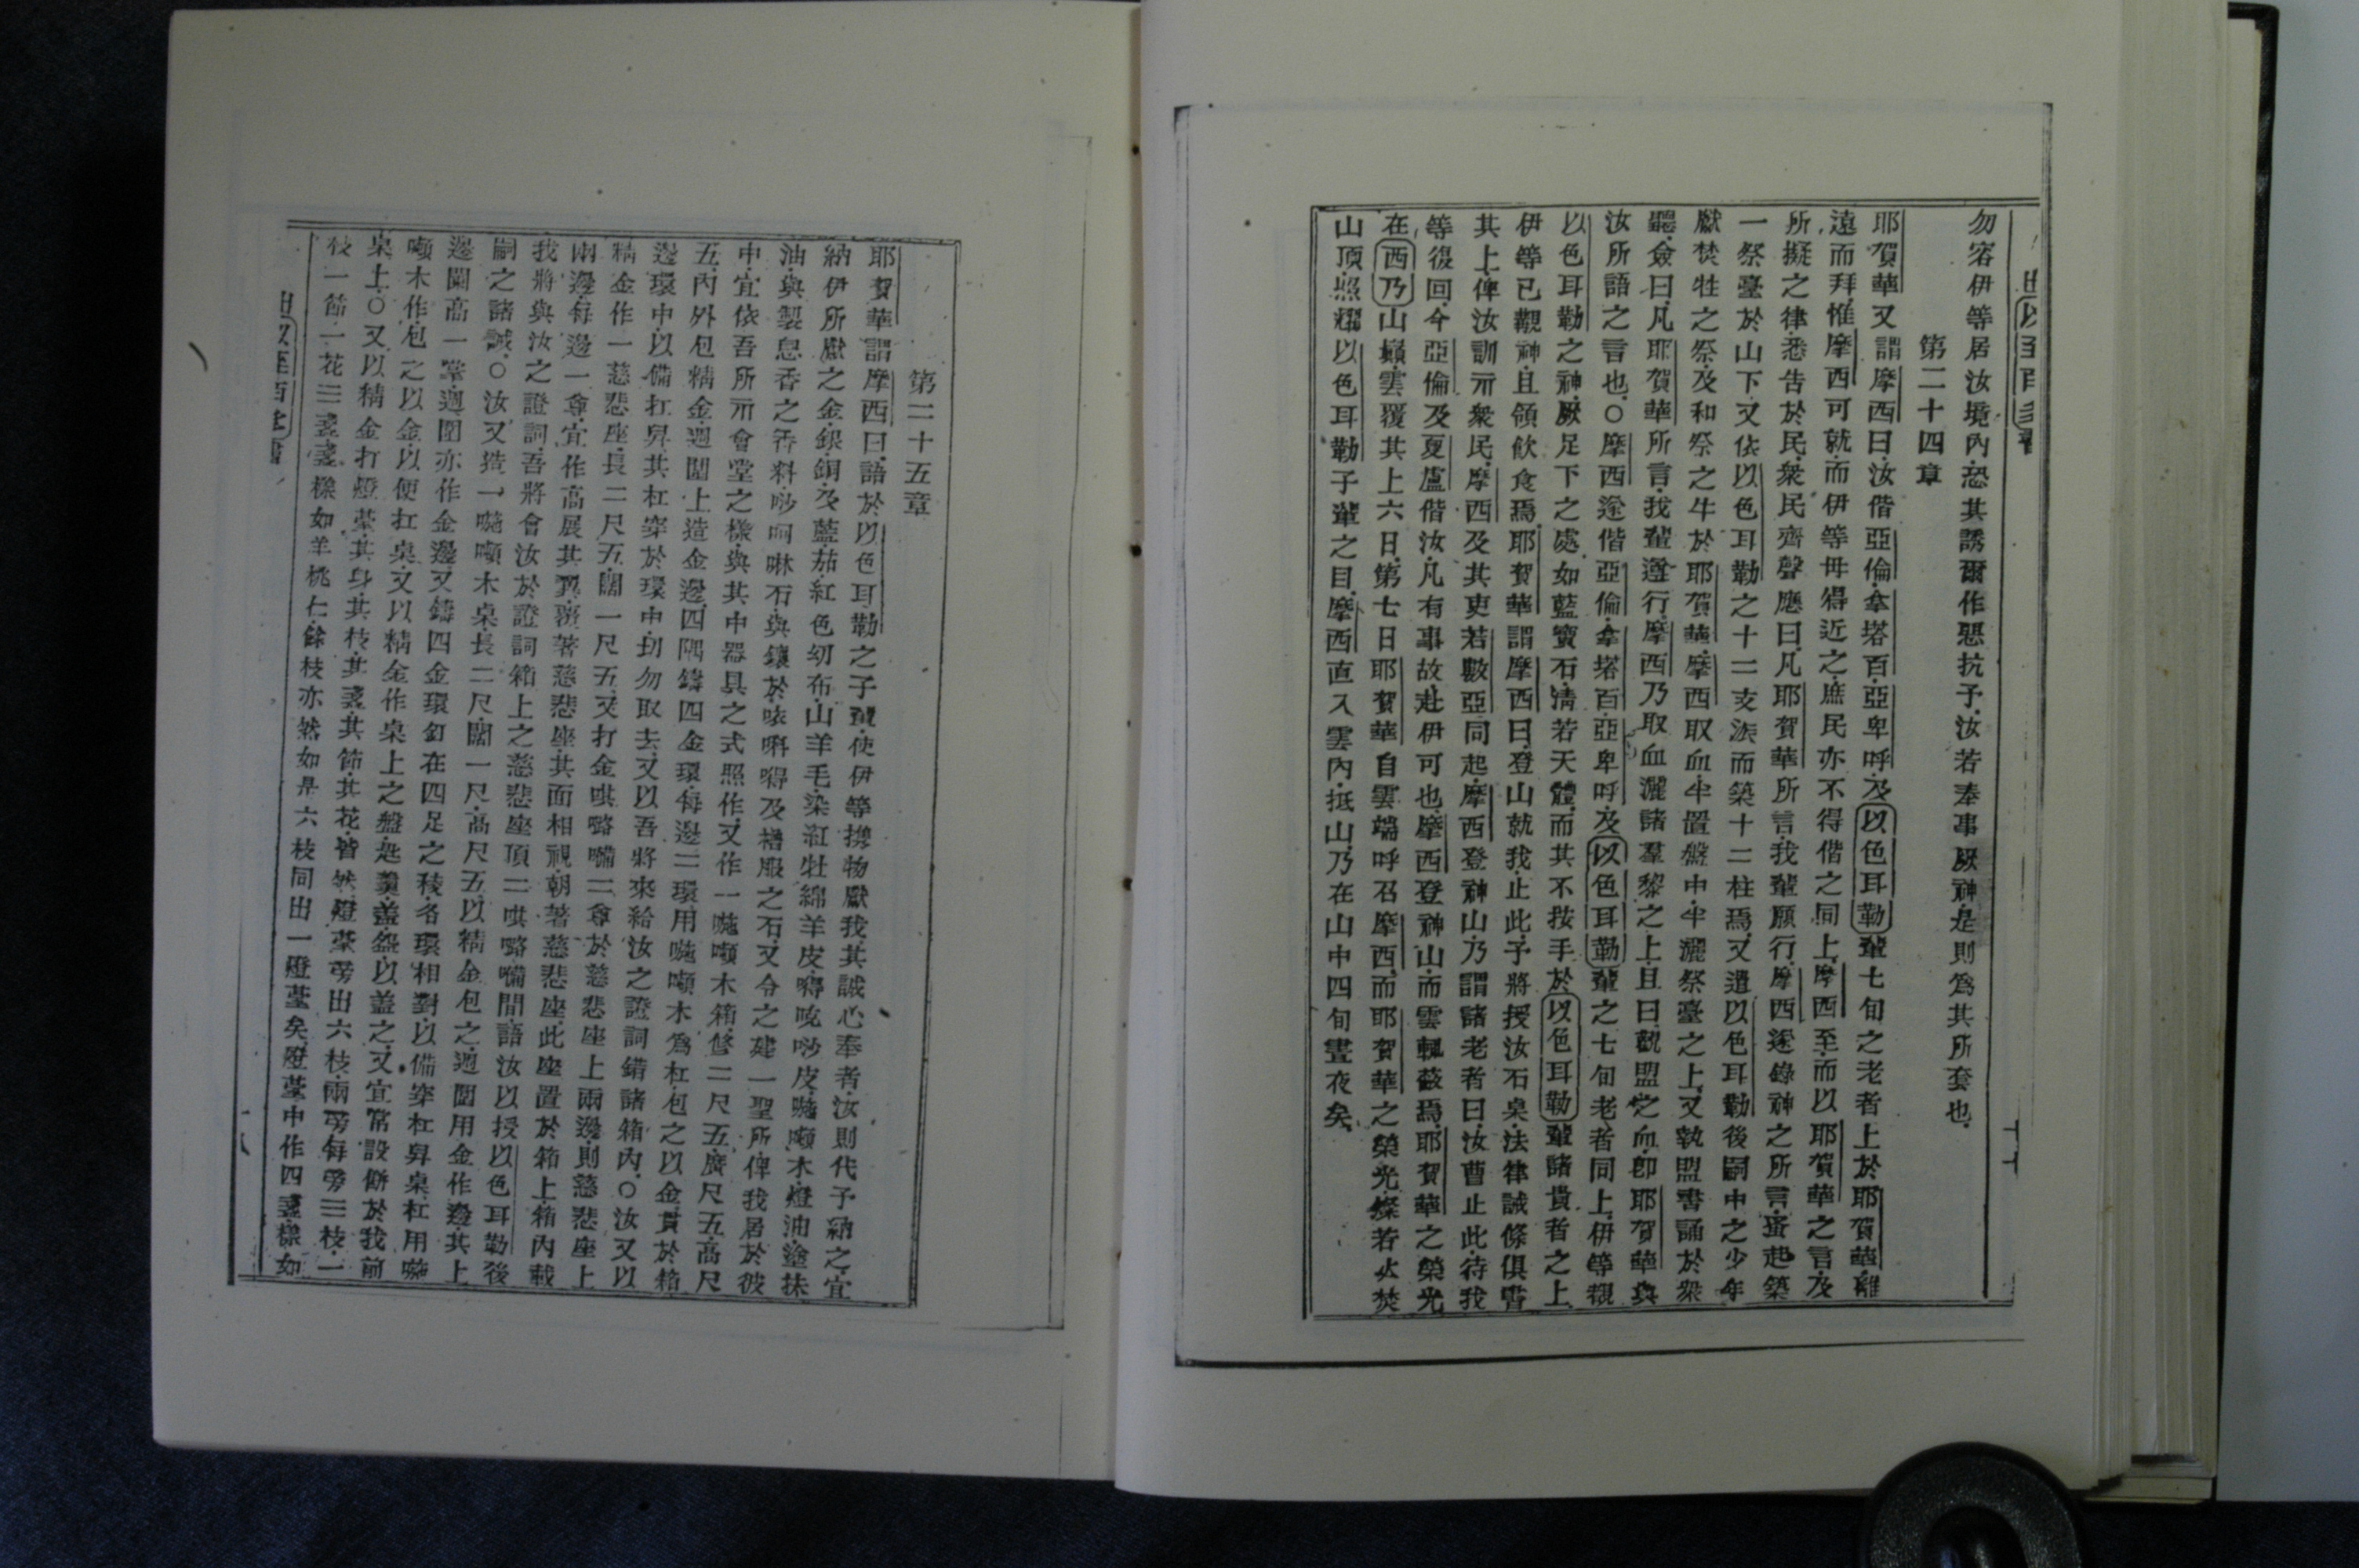 勿容伊等居汝境內恐其誘爾作惡抗予汝若奉事厥神是則爲其所套也
第二十四章
耶賀華又謂摩西曰汝偕亞倫拿塔百亞卑呼及以色耳勒輩七旬之老者上於耶賀華離
遠而拜惟摩西可就而伊等毋得近之庶民亦不得偕之同上摩西至而以耶賀華之言及
所擬之律悉告於民衆民齊聲應曰凡耶賀華所言我輩願行摩西遂錄神之所言蚤起築
一祭臺於山下又依以色耳勒之十二支派而築十二柱焉又遣以色耳勒後嗣中之少年
獻焚牲之祭及和祭之牛於耶賀華摩西取血半置盤中半灑祭臺之上又執盟書誦於衆
聽僉曰凡耶賀華所言我輩遵行摩西乃取血灑諸羣黎之上且曰觀盟之血卽耶賀華與
汝所語之言也○摩西遂偕亞倫拿塔百亞卑呼及以色耳勒輩之七旬老者同上伊等覩
以色耳勒之神厥足下之處如藍寶石淸若天體而其不按手於以色耳勒輩諸貴者之上
伊等已觀神且領飲食焉耶賀華謂摩西曰登山就我止此予將授汝石桌法律誡條俱書
其上俾汝訓示衆民摩西及其吏若數亞同起摩西登神山乃謂諸老者曰汝曹止此待我
等復回今亞倫及夏盧偕汝凡有事故赴伊可也摩西登神山而雲輒蔽焉耶賀華之榮光
在西乃山巔雲覆其上六日第七日耶賀華自雲端呼召摩西而耶賀華之榮光燦若火焚
山頂照耀以色耳勒子輩之目摩西直入雲內抵山乃在山中四旬晝夜矣
第二十五章
耶賀華謂摩西曰語於以色耳勒之子輩使伊等攜物獻我其誠心奉者汝則代予納之宜
納伊所獻之金銀銅及藍茄紅色幼布山羊毛染紅牡綿羊皮㗳唍唦皮𠾐㘔木燈油塗抹
油與製息香之香料唦呵啉石與鑲於𠲖唎㗳及禮服之石又令之建一聖所俾我居於彼
中宜依吾所示會堂之樣與其中器具之式照作又作一𠾐㘔木箱修二尺五廣尺五高尺
五內外包精金週圍上造金邊四隅鑄四金環每邊二環用𠾐㘔木爲杠包之以金貫於箱
邊環中以備扛舁其杠穿於環中切勿取去又以吾將來給汝之證詞錯諸箱內○汝又以
精金作一慈悲座長二尺五闊一尺五又打金㖟㗉㗘二尊於慈悲座上兩邊則慈悲座上
兩邊每邊一尊宜作高展其翼庇著慈悲座其面相視朝著慈悲座此座置於箱上箱內載
我將與汝之證詞吾將會汝於證詞箱上之慈悲座頂二㖟㗉㗘間語汝以授以色耳勒後
嗣之諸誡○汝又造一𠾐㘔木桌長二尺闊一尺高尺五以精金包之週圍用金作邊其上
邊闌高一掌週圍亦作金邊又鑄四金環釘在四足之稜各環相對以備穿杠舁桌杠用𠾐
㘔木作包之以金以便扛桌又以精金作桌上之盤匙羹盖盌以盖之又宜常設餅於我前
桌上○又以精金打燈臺其身其枝其盞其節其花皆然燈臺旁出六枝兩旁每旁三枝一
枝一節一花三盞盞樣如羊桃仁餘枝亦然如是六枝同出一燈臺矣燈臺中作四盞樣如
十八